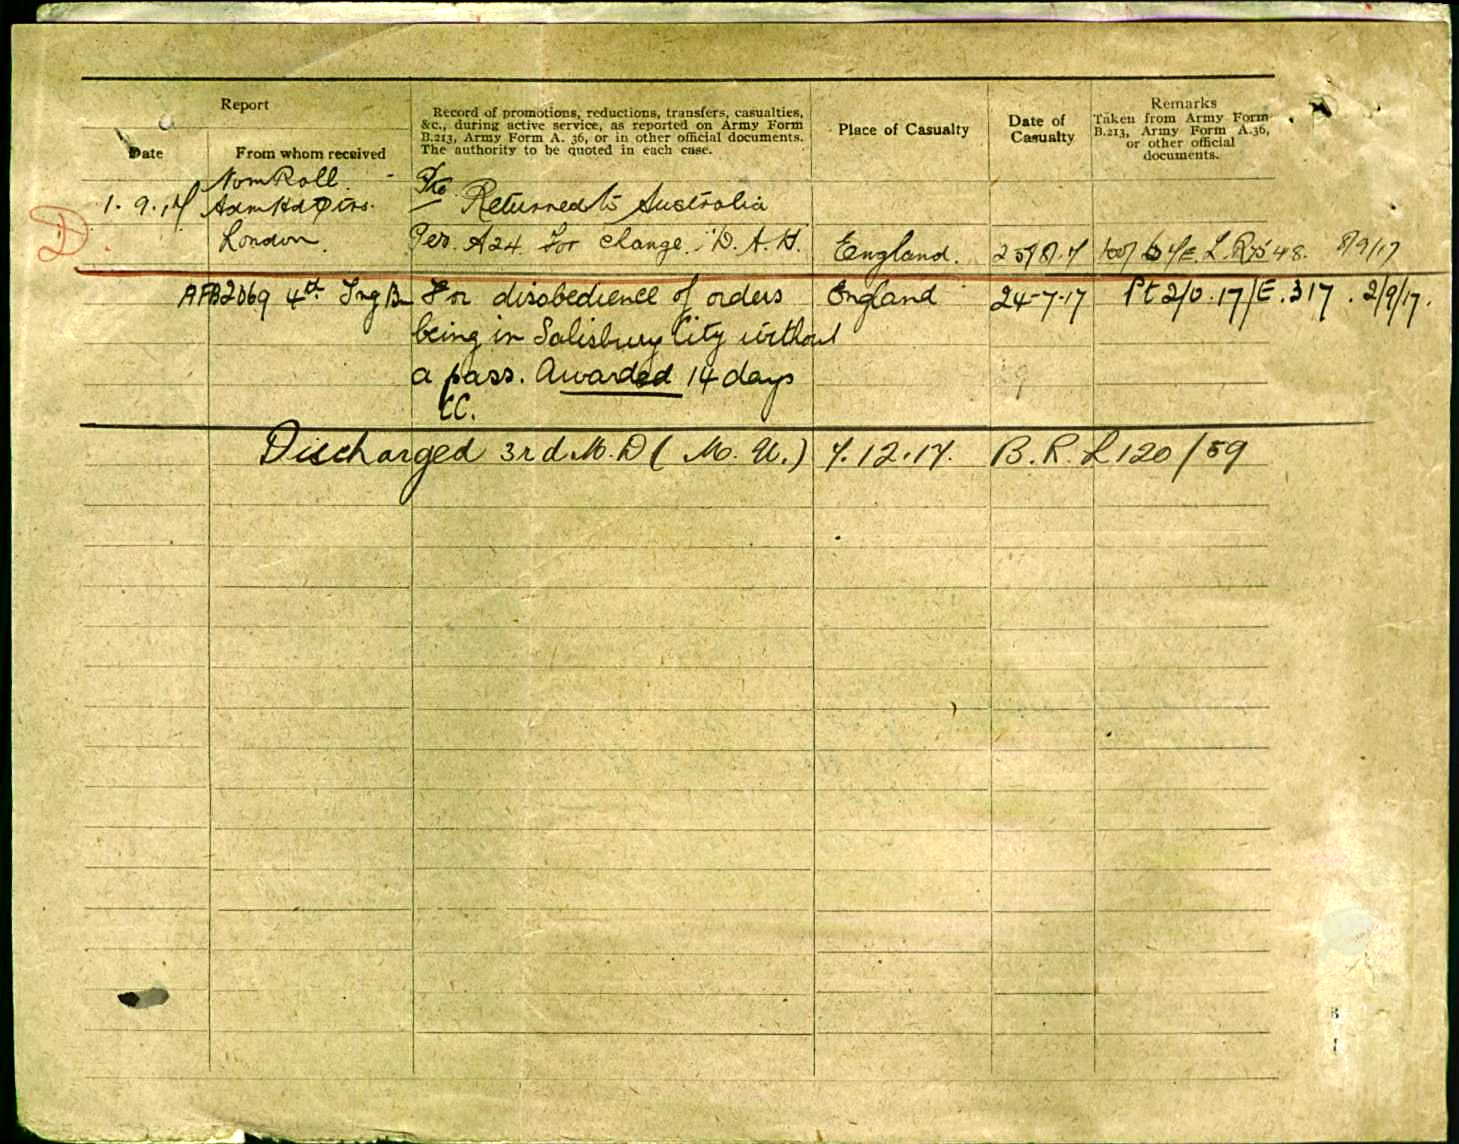 Report
Record of promotions, reductions, transfers, casualties,
&c., during active service, as reported on Army Form
B.213, Army Form A. 36, or in other official documents.
The authority to be quoted in each case.
Place of Casualty
Date of
Casualty
Remarks
Taken from Army Form
B.213, Army Form A.36,
or other official
documents.
Date
From whom received
Nom Roll.
1. 9. 17 Adm Hd Qtrs. Returned to Australia
London. Per. A24 for change. D. A. H. England. 8/9/17
D.
AFB2069 4th Trg B For disobedience of orders England 24-7-17 Pt 2/O.17/E.317. 2/9/17.
being in Salisbury City without
a pass. Awarded 14 days
CC.
Discharged 3rd M.D ( M. U.) 7.12.17. B.R. L 120/59